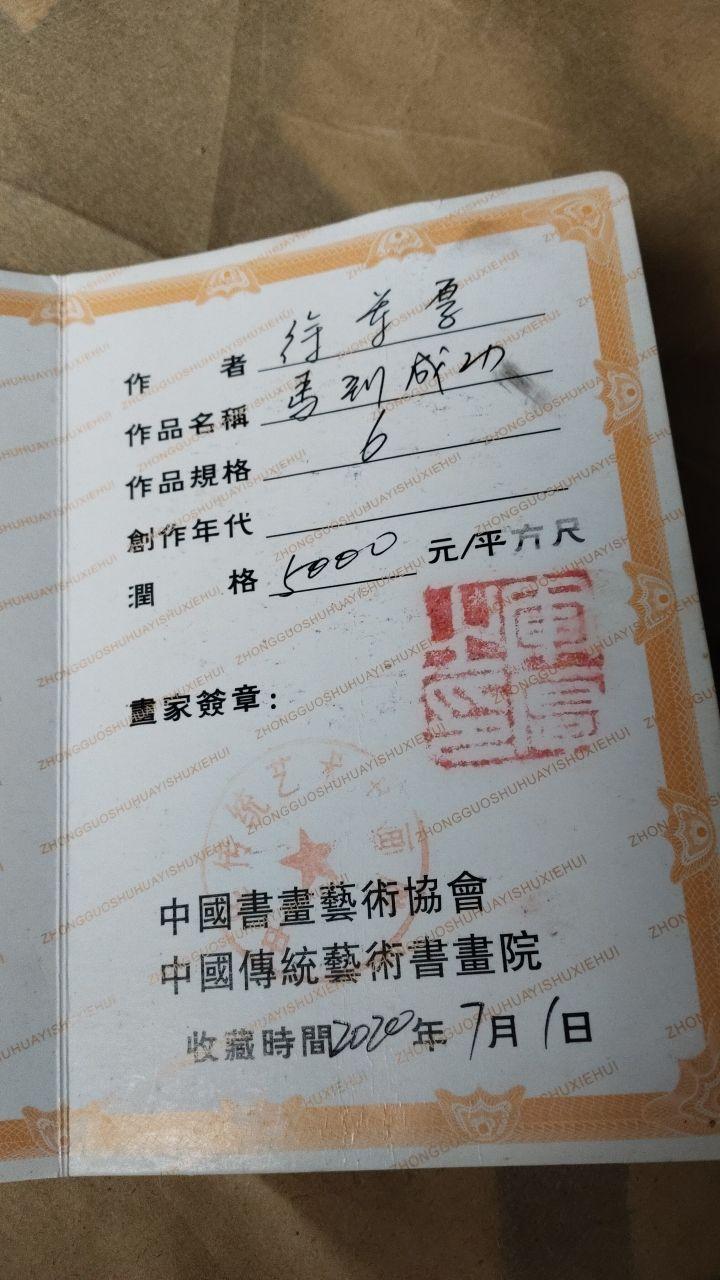 作者 徐
作品名稱 馬到成功
作品規格 6
創作年代
潤格 5000 元/平方尺
畫家簽章：
中國書畫藝術協會
中國傳統藝術書畫院
收藏時間2020年7月1日
ZHONGGUOSHUHUAYISHUXIEHUI